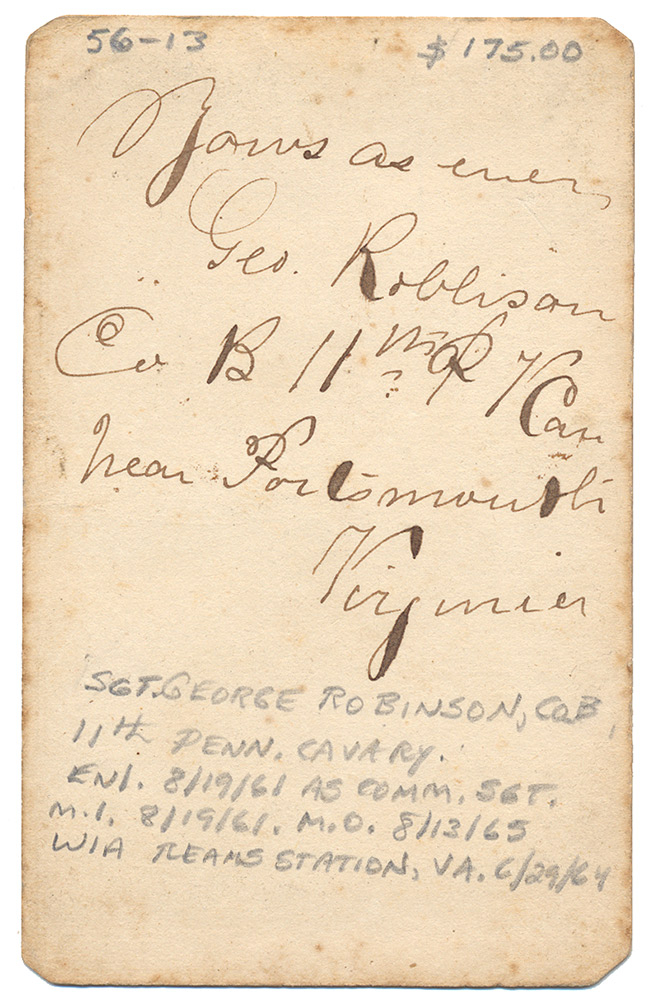 56-13 $175.00
Yours as ever
Geo. Roblison
Co B 11th P V Cav
near Portsmouth
Virginia
SGT. GEORGE ROBINSON, CO.B,
11th PENN. CAVARY.
ENl. 8/19/61 AS COMM. SGT.
M.I. 8/19/61. M.O. 8/13/65
WIA REAMS STATION, VA. 6/29/64